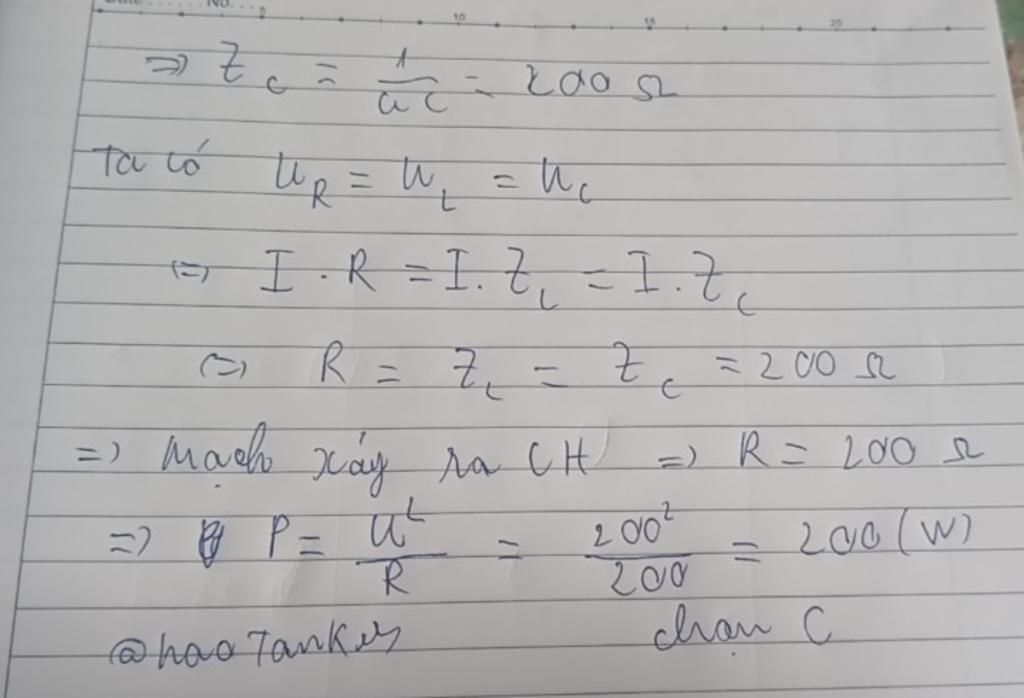 No.
10 15 20
=> Z_C = 1/ωC = 200 Ω
Ta có U_R = U_L = U_C
<=> I . R = I . Z_L = I . Z_C
<=> R = Z_L = Z_C = 200 Ω
=> Mạch xảy ra CH => R = 200 Ω
=> P = U²/R = 200²/200 = 200 (W)
@haoTankey chọn C